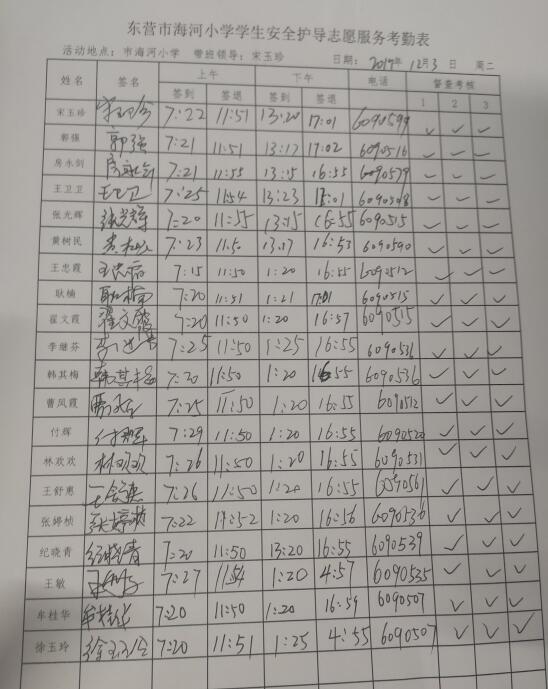 东营市海河小学学生安全护导志愿服务考勤表
活动地点：市海河小学 带班领导：宋玉珍 日期：2019年 12月3日 周二
姓名 签名 上午 下午 电话 督查考核
签到 签退 签到 签退 1 2 3
宋玉珍 7:22 11:51 13:20 17:01 6090599 ✓ ✓ ✓
郭强 郭强 7:21 11:51 13:17 17:02 6090516 ✓ ✓ ✓
房永剑 房永剑 7:21 11:55 13:15 16:55 6090579 ✓ ✓ ✓
王卫卫 王卫卫 7:25 11:54 13:23 17:01 6090508 ✓ ✓ ✓
张光辉 张光辉 7:20 11:55 13:15 16:55 6090515 ✓ ✓ ✓
黄树民 7:23 11:50 13:07 16:53 6090590 ✓ ✓ ✓
王忠霞 王忠霞 7:15 11:50 1:20 16:55 6090512 ✓ ✓ ✓
耿楠 耿楠 7:20 11:51 1:21 17:01 6090515 ✓ ✓ ✓
翟文霞 翟文霞 7:20 11:50 1:20 16:57 6090515 ✓ ✓ ✓
李继芬 7:25 11:50 1:25 16:55 6090536 ✓ ✓ ✓
韩其梅 韩其梅 7:20 11:50 1:20 16:55 6090536 ✓ ✓ ✓
曹凤霞 7:25 11:50 1:20 16:55 6090512 ✓ ✓ ✓
付辉 付辉 7:29 11:50 1:20 16:55 6090520 ✓ ✓ ✓
林欢欢 林欢欢 7:26 11:50 1:20 16:55 6090531 ✓ ✓ ✓
王舒惠 王舒惠 7:26 11:50 1:20 16:55 6090561 ✓ ✓ ✓
张婷桢 张婷桢 7:22 11:52 1:20 16:56 6090536 ✓ ✓ ✓
纪晓青 纪晓青 7:20 11:50 13:20 16:55 6090539 ✓ ✓ ✓
王敏 7:27 11:54 1:20 4:57 6090535 ✓ ✓ ✓
牟桂华 牟桂华 7:20 11:50 1:20 16:59 6090507 ✓ ✓ ✓
徐玉玲 徐玉玲 7:20 11:51 1:25 4:55 6090507 ✓ ✓ ✓